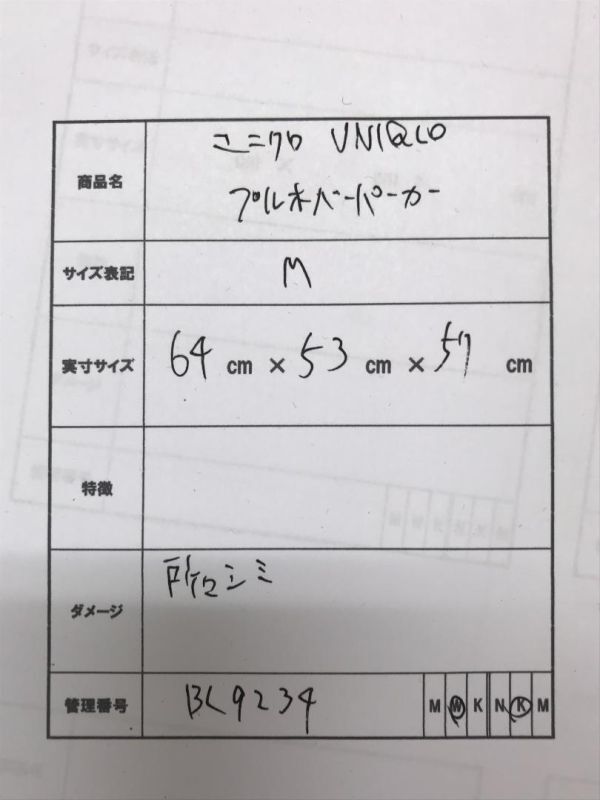 商品名
ユニクロ UNIQLO
プルオーバーパーカー
サイズ表記
M
実寸サイズ
64 cm × 53 cm × 57 cm
特徴
ダメージ
所々シミ
管理番号
BC9234
M W K N K M